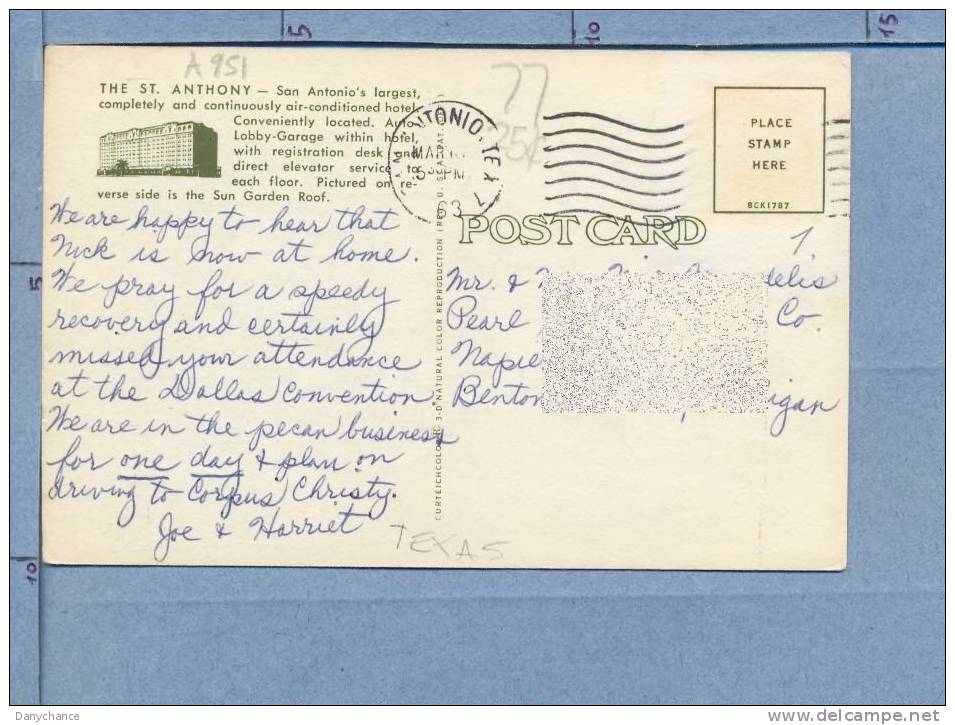 5
10
15
5
10
A 951
THE ST. ANTHONY — San Antonio's largest,
completely and continuously air-conditioned hotel.
Conveniently located. Auto
Lobby-Garage within hotel,
with registration desk and
direct elevator service to
each floor. Pictured on re-
verse side is the Sun Garden Roof.
We are happy to hear that
Nick is now at home.
We pray for a speedy
recovery and certainly
missed your attendance
at the Dallas Convention.
We are in the pecan business
for one day & plan on
driving to Corpus Christy.
Joe & Harriet
TEXAS
CURTEICHCOLOR 3-D NATURAL COLOR REPRODUCTION (REG. U. S. PAT.
77
25¢
ANTONIO, TEX
5 30 PM
PLACE
STAMP
HERE
8CK1787
POST CARD
1
Mr. &
Pearl Co.
Danychance
www.delcampe.net